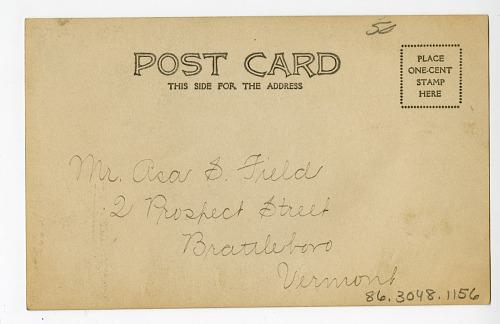 50
POST CARD
THIS SIDE FOR THE ADDRESS
PLACE
ONE-CENT
STAMP
HERE
Mr. Asa S. Field
2 Prospect Street
Brattleboro
Vermont
86.3048.1156